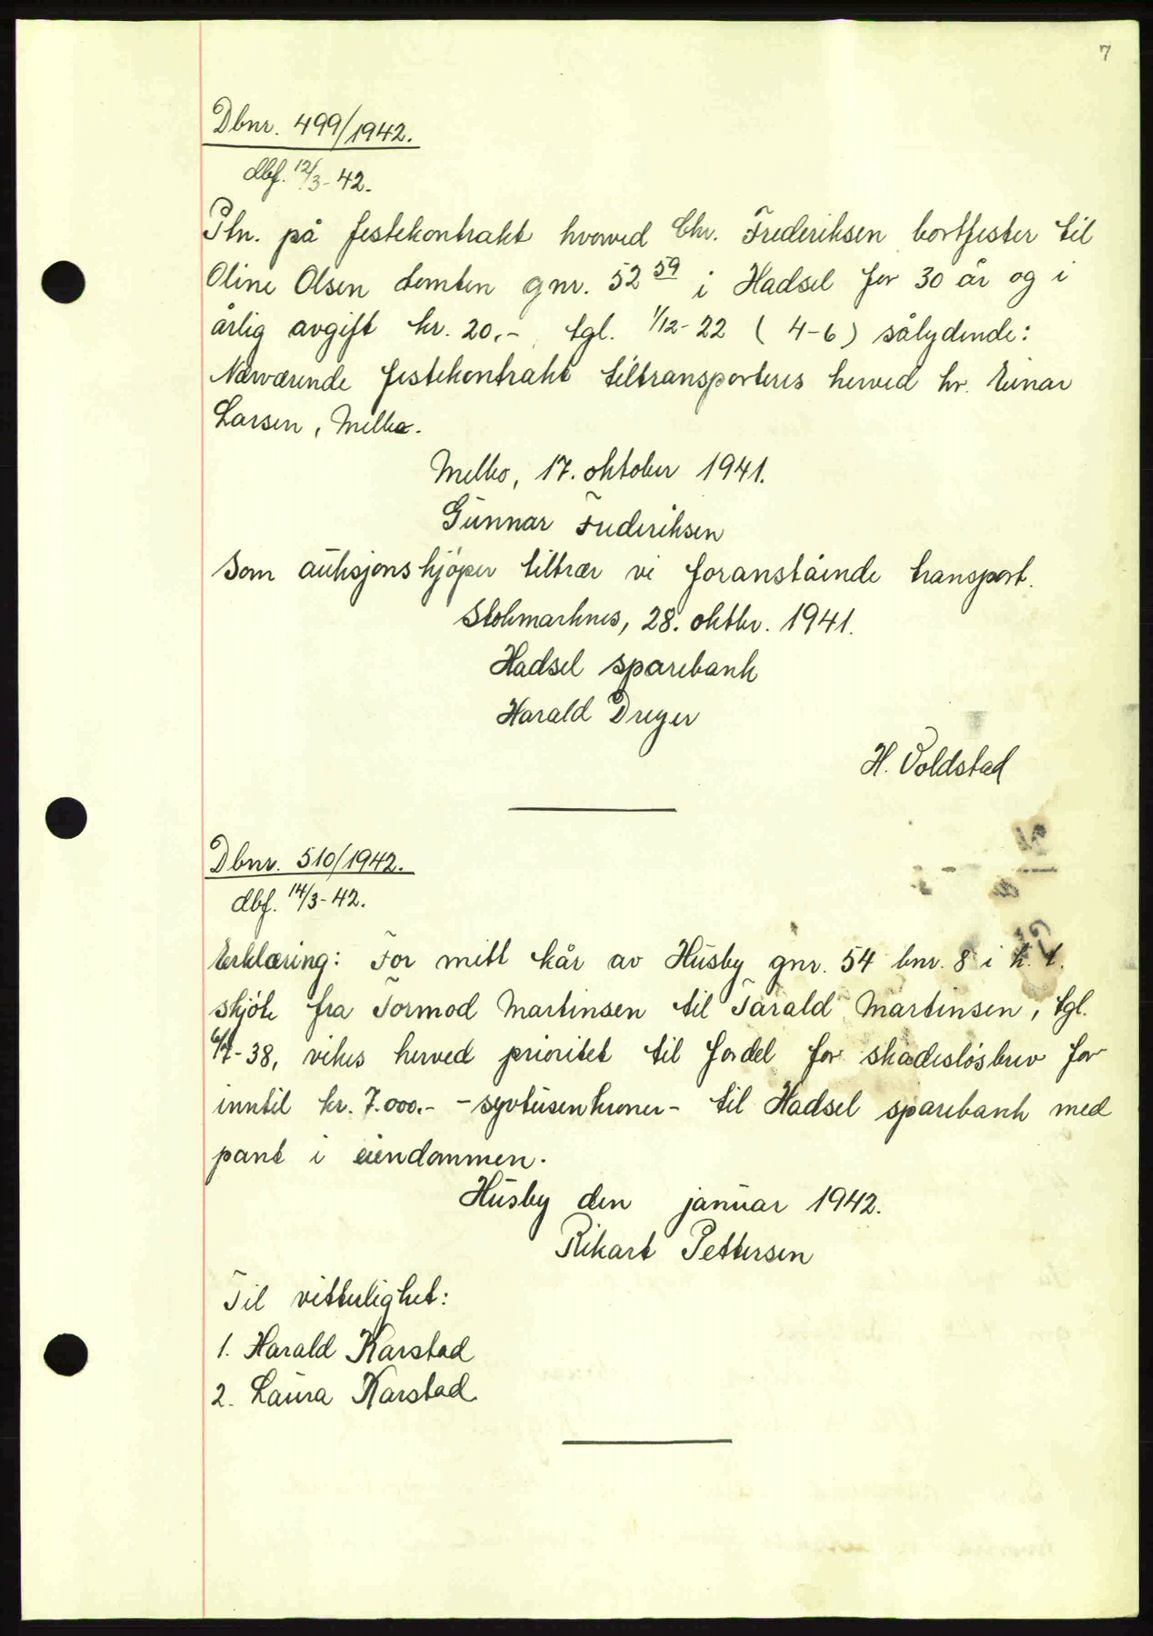 7
Dbnr. 499/1942.
dbf. 12/3-42.
Ptn. på festekontrakt hvorved Chr. Frederiksen bortfester til
Oline Olsen tomten gnr. 52 59 i Hadsel for 30 år og i
årlig avgift kr. 20.- tgl. 1/12-22 (4-6) sålydende:
Nærværende festekontrakt tiltransporteres herved hr. Einar
Larsen, Melbo.
Melbo, 17. oktober 1941.
Gunnar Frederiksen
Som auksjonskjøper tiltrær vi foranstående transport.
Stokmarknes, 28. oktbr. 1941.
Hadsel sparebank
Harald Dreyer
H. Voldstad
Dbnr. 510/1942.
dbf. 14/3-42.
Erklæring: For mitt kår av Husby gnr. 54 bnr. 8 i h.t.
skjöte fra Tormod Martinsen til Tarald Martinsen, tgl.
6/7-38, vikes herved prioritet til fordel for skadeslösbrev for
inntil kr. 7.000.- - syvtusenkroner - til Hadsel sparebank med
pant i eiendommen.
Husby den januar 1942.
Rikart Pettersen
Til vitterlighet:
1. Harald Karstad
2. Laura Karstad